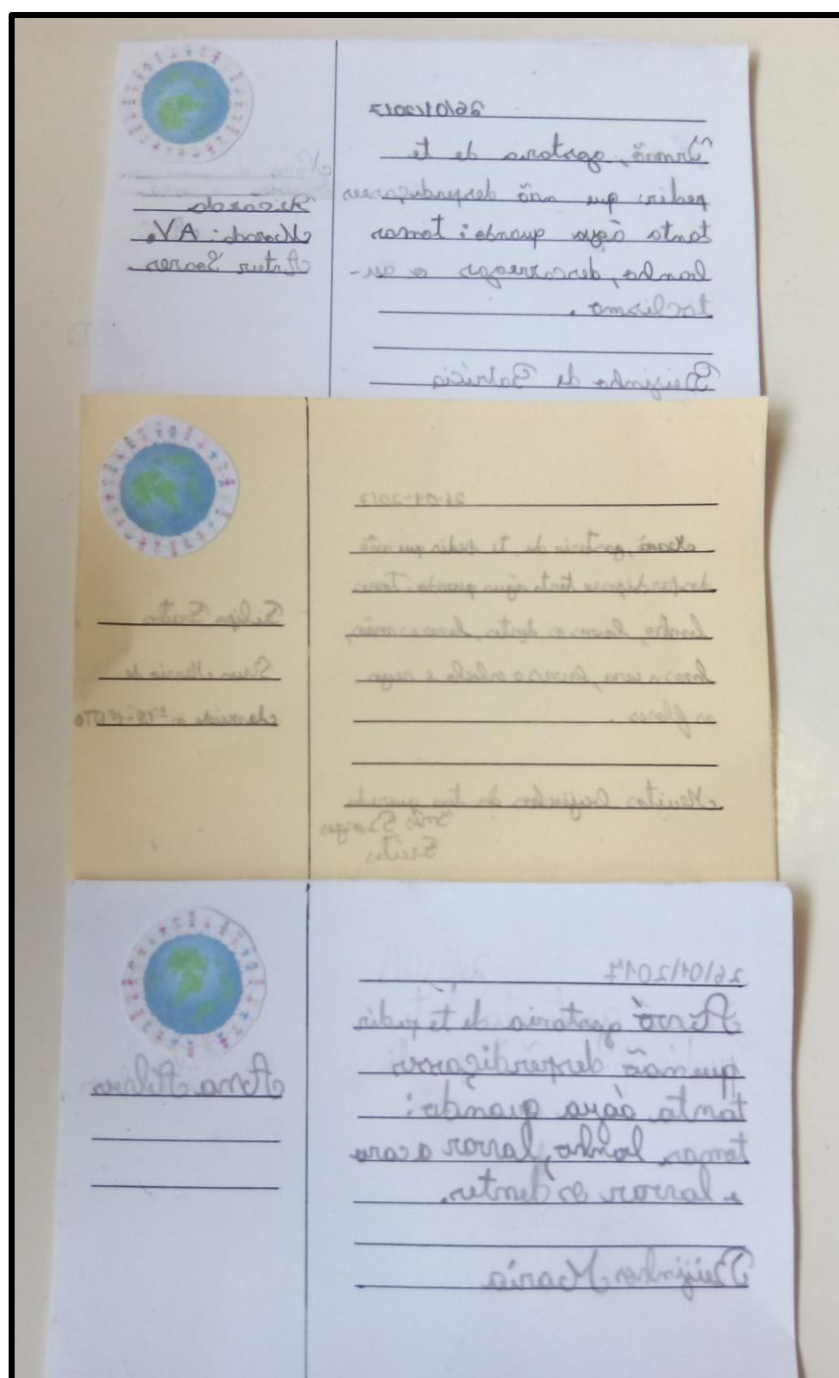 26/01/2017
Irmão, gostaria de te
pedir: que não desperdiçasses
tanta água quando: tomar
banho, descarregas o au-
toclismo.
Beijinho de Patrícia
Ricardo
Morada: AV.
Artur Soares
26-01-2017
gostaria de te pedir que não
desperdiçasse tanta água quando: tomas
banho, lavas os dentes, lavas as mãos,
lavas a cara, lavas o cabelo e regas
as flores.
Muitos beijinhos da tua querida
Inês Borges
Freitas
Freitas
Rua Maria de
nº 78-1ºDTO
26/01/2017
Avó gostaria de te pedir
que não desperdiçasses
tanta água quando:
tomar banho, lavar a cara
e lavar os dentes.
Beijinhos Maria
Ana Alves